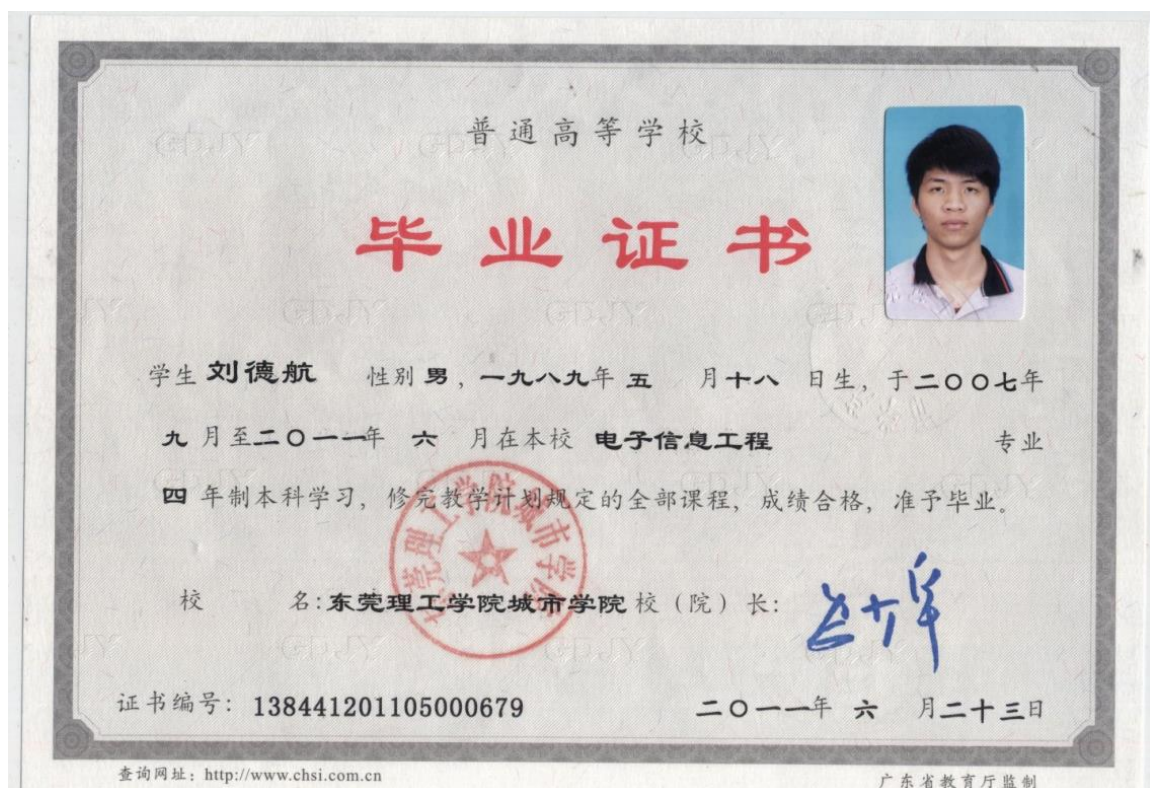 普通高等学校
毕业证书
学生 刘德航 性别 男，一九八九年 五 月十八 日生，于二〇〇七年
九 月至二〇一一年 六 月在本校 电子信息工程 专业
四 年制本科学习，修完教学计划规定的全部课程，成绩合格，准予毕业。
东莞理工学院城市学院
校 名：东莞理工学院城市学院 校（院）长：
证书编号：138441201105000679 二〇一一年 六 月二十三日
查询网址：http://www.chsi.com.cn 广东省教育厅监制